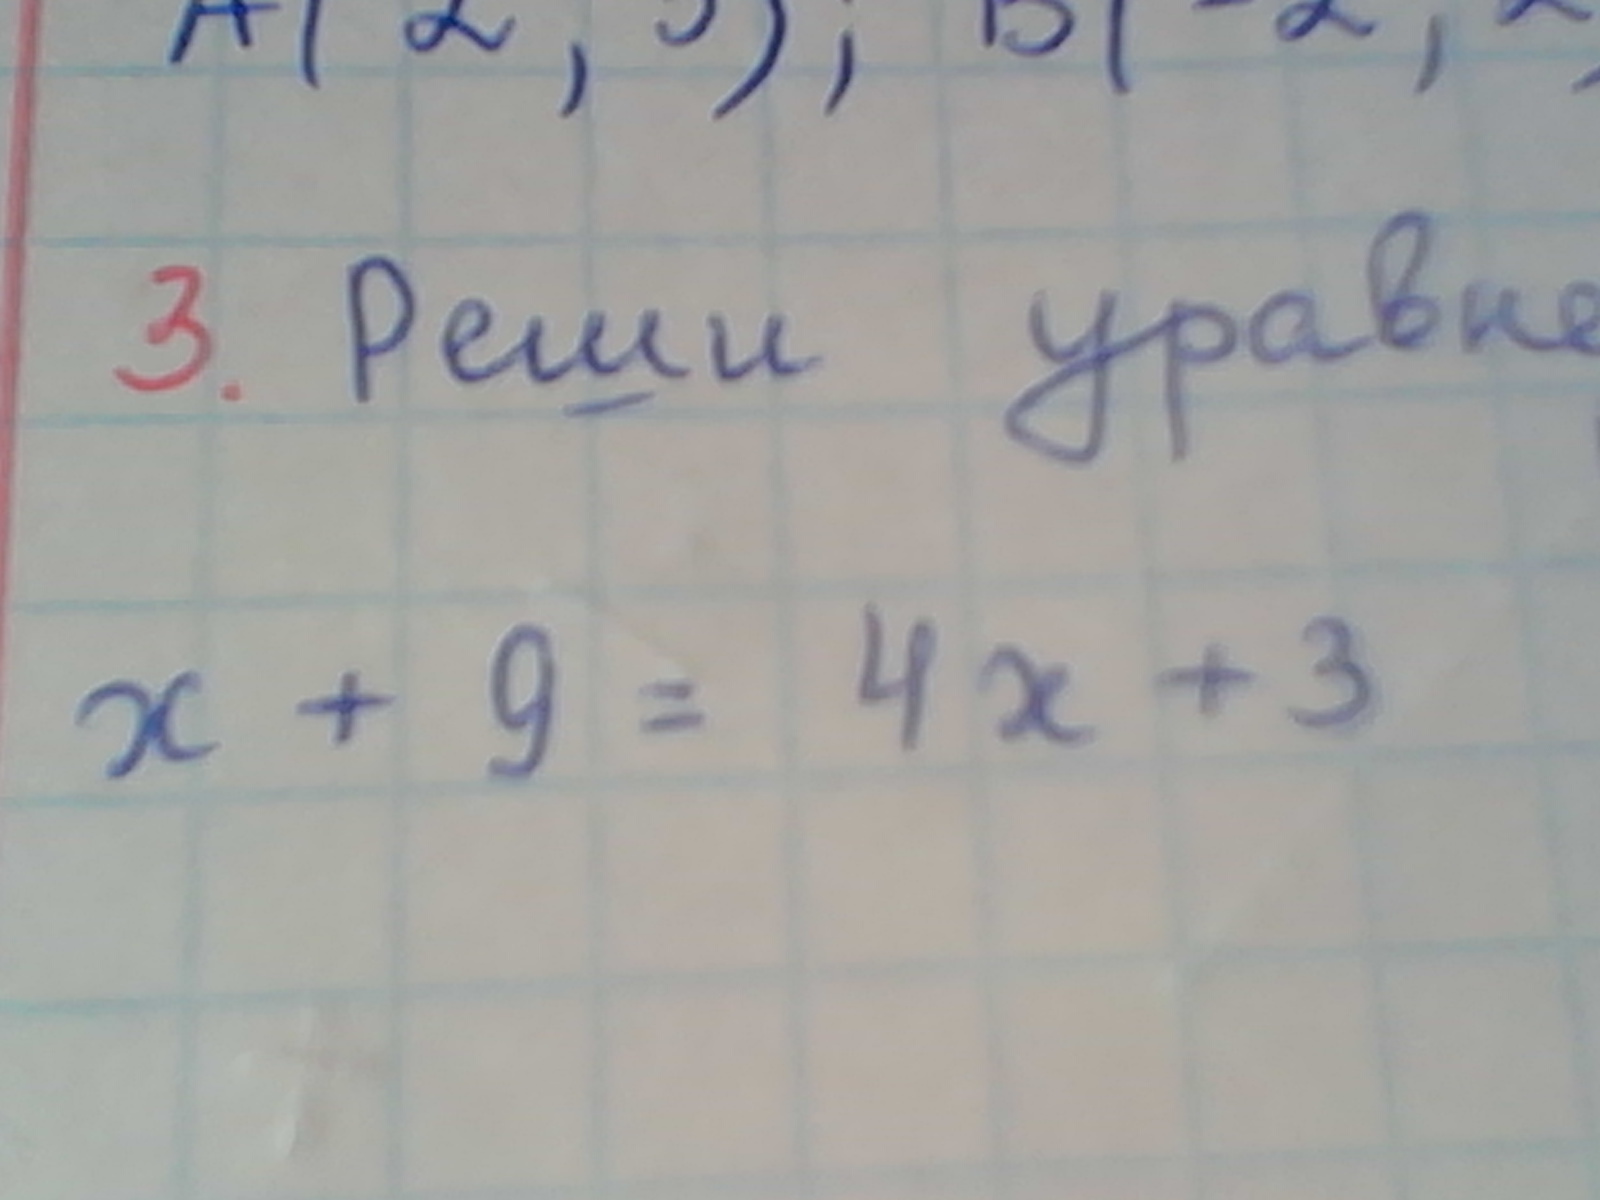 A( 2 , 5); B( -2 , 2
3. Реши уравне
x + 9 = 4x + 3